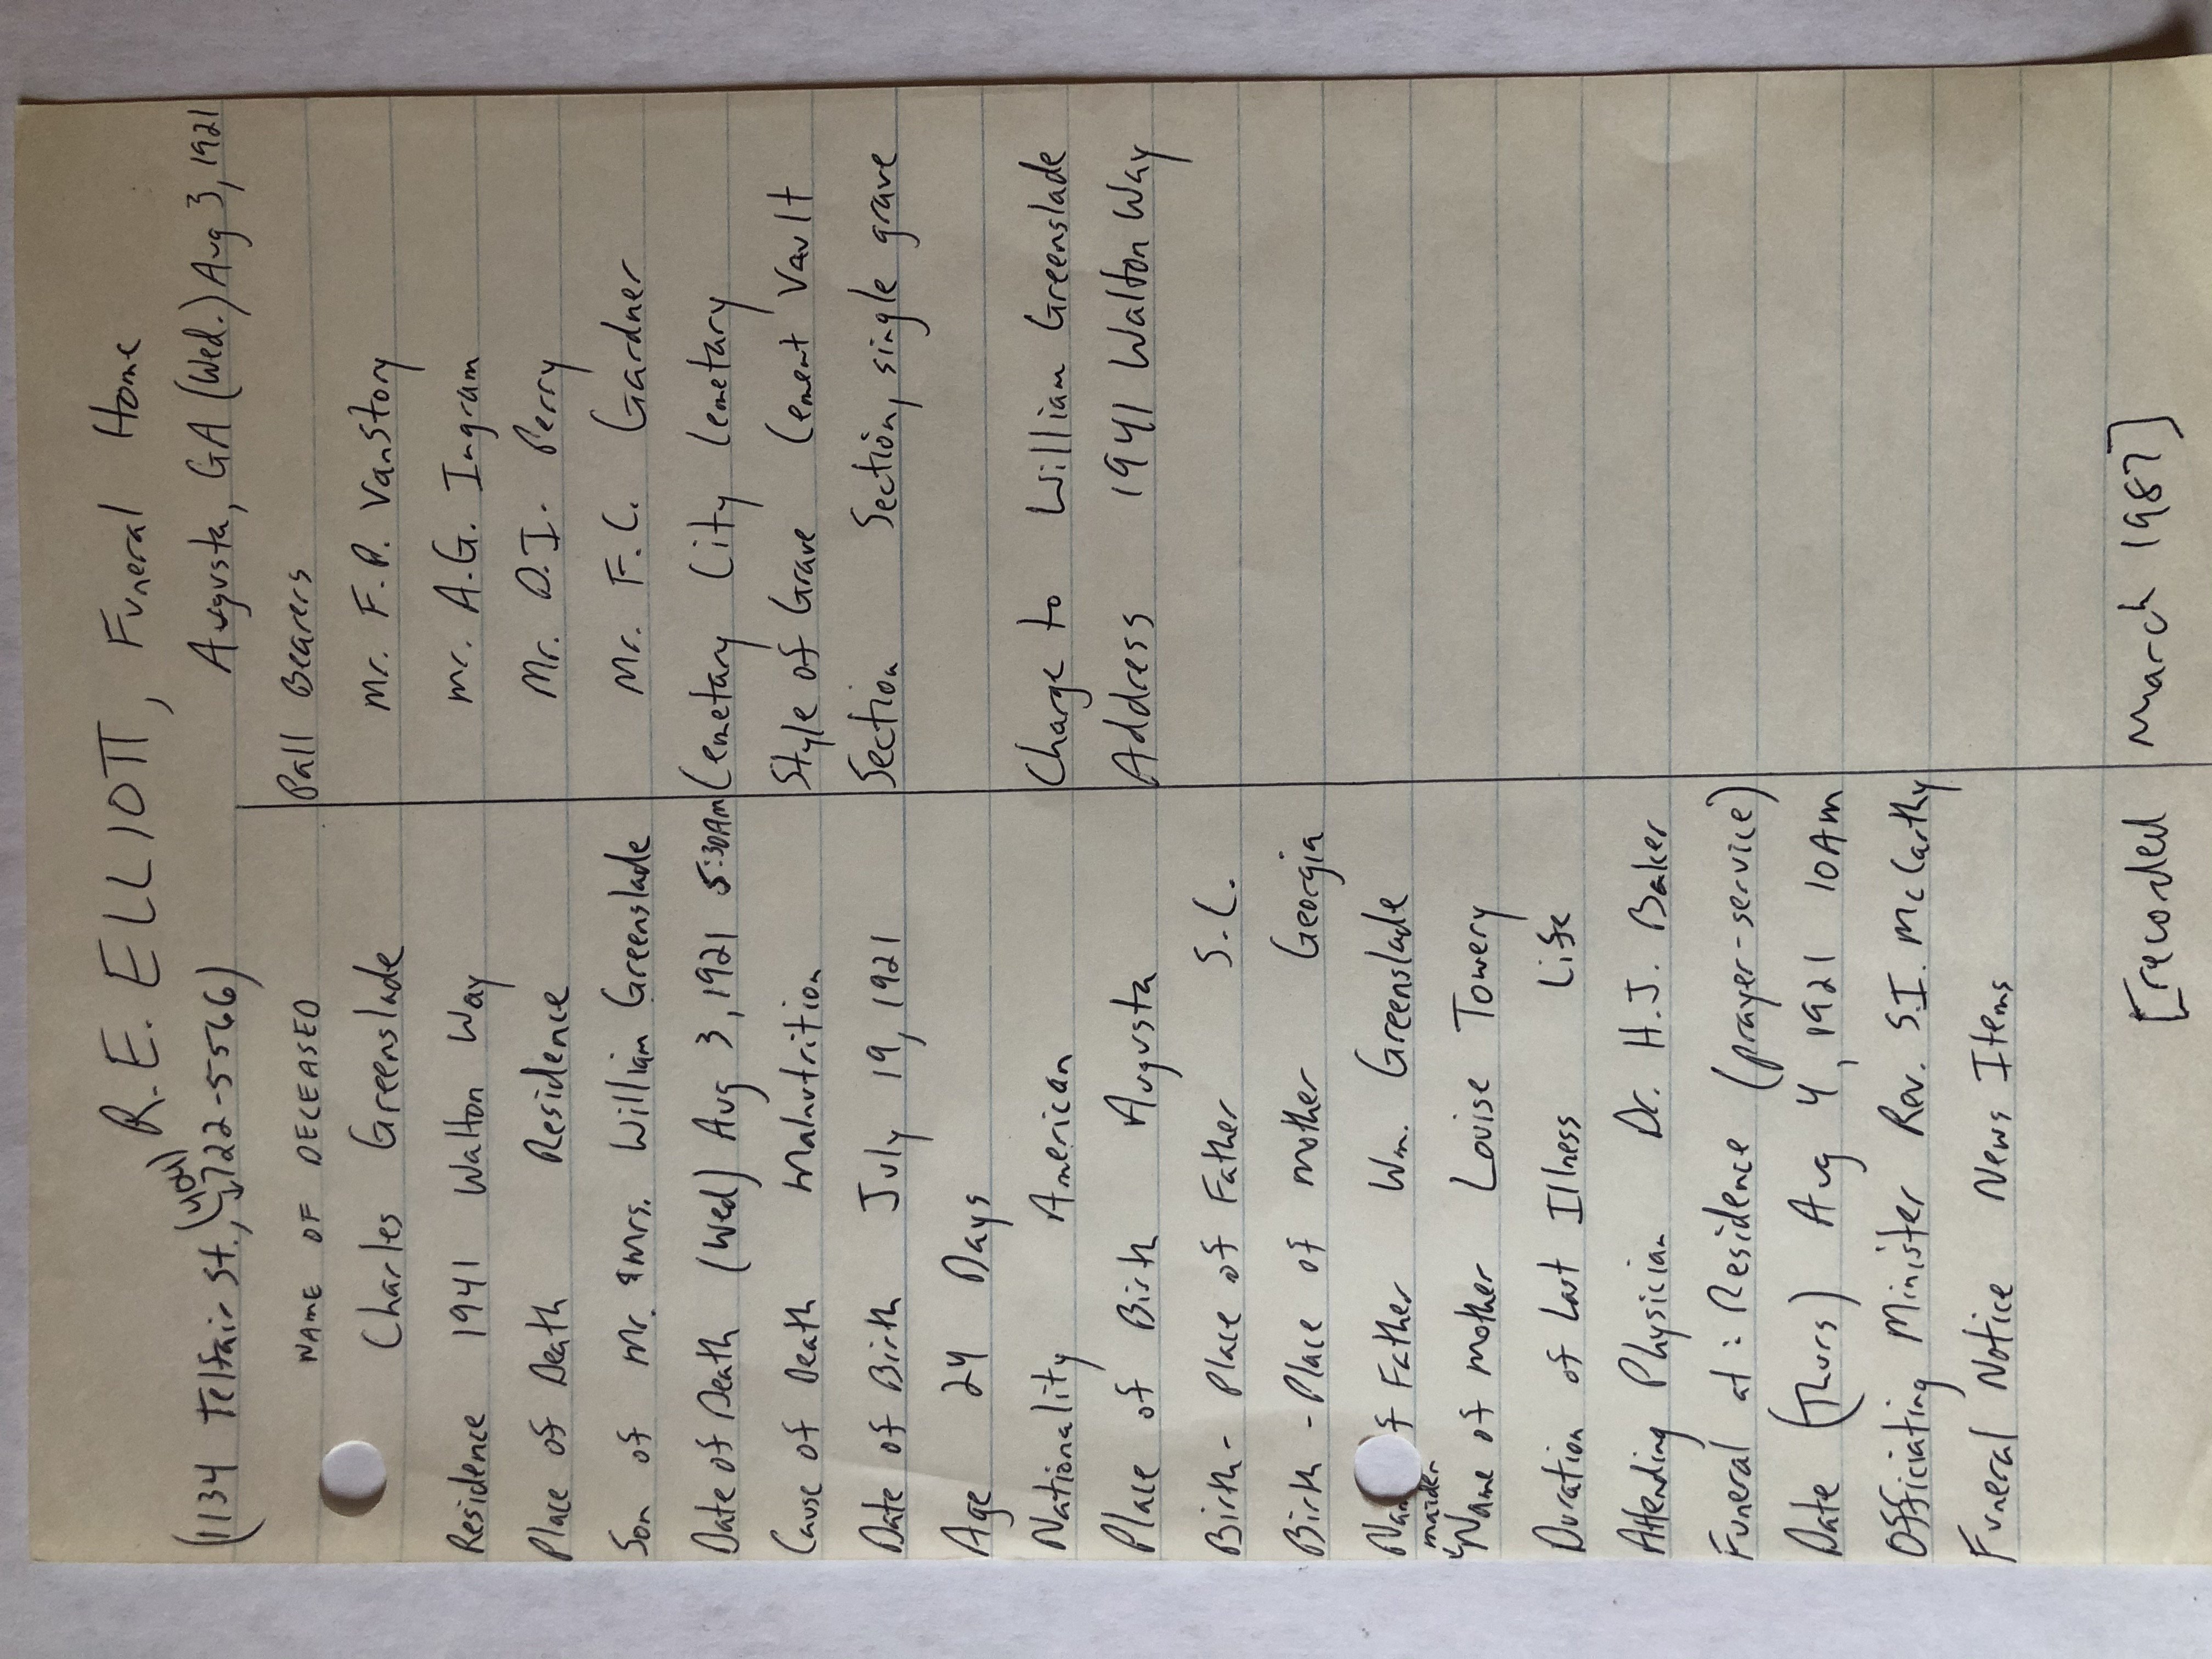 R.E. ELLIOTT, Funeral Home
(404)
(1134 Telfair St., 722-5566)
Augusta, GA (Wed.) Aug 3, 1921
NAME OF DECEASED
Charles Greenslade
Residence 1941 Walton Way
Place of Death Residence
Son of Mr. & Mrs. William Greenslade
Date of Death (Wed) Aug 3, 1921 5:30AM
Cause of Death Malnutrition
Date of Birth July 19, 1921
Age 24 Days
Nationality American
Place of Birth Augusta
Birth-Place of Father S.C.
Birth-Place of Mother Georgia
Nam f Father Wm. Greenslade
maiden
Name of Mother Louise Towery
Duration of Last Illness Life
Attending Physician Dr. H.J. Baker
Funeral at: Residence (prayer-service)
Date (Thurs) Aug 4, 1921 10AM
Officiating Minister Rev. S.I. McCarthy
Funeral Notice News Items
Pall Bearers
Mr. F.P. VanStory
Mr. A.G. Ingram
Mr. D.I. Perry
Mr. F.C. Gardner
Cemetary City Cemetary
Style of Grave Cement Vault
Section Section, single grave
Charge to William Greenslade
Address 1941 Walton Way
[recorded March 1987]